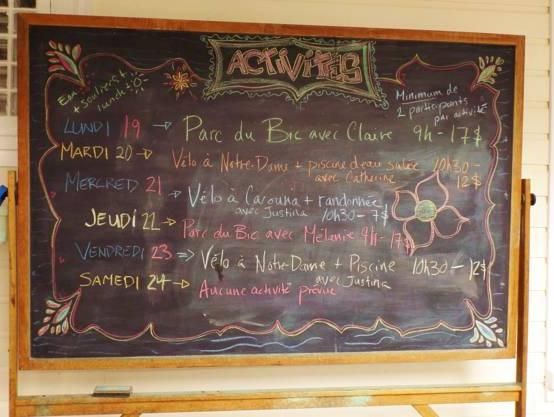 ACTIVITÉS
Eau
+ souliers +
lunch!
Minimum de
2 participants
par activité
LUNDI 19 → Parc du Bic avec Claire 9h - 17$
MARDI 20 → Vélo à Notre-Dame + piscine d'eau salée 10h30 -
avec Catherine 12$
MERCREDI 21 → Vélo à Cacouna + randonnée
avec Justina 10h30 - 7$
JEUDI 22 → Parc du Bic avec Mélanie 9h - 17$
VENDREDI 23 ⇒ Vélo à Notre-Dame + Piscine 10h30 - 12$
avec Justina
SAMEDI 24 → Aucune activité prévue